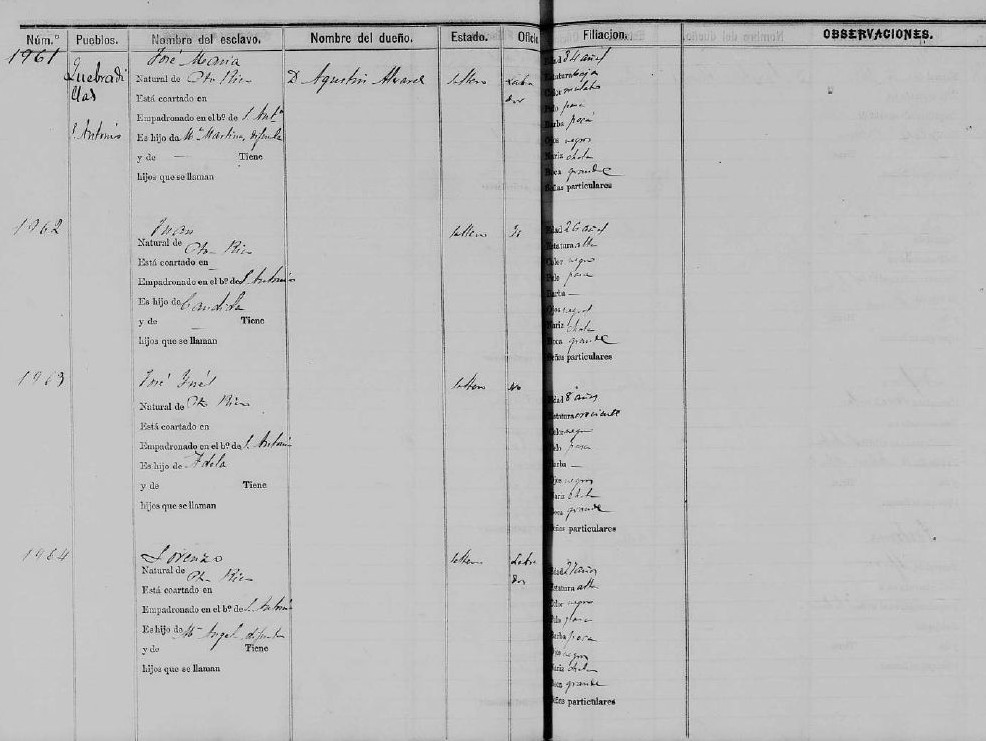 Núm.º Pueblos. Nombre del esclavo. Nombre del dueño. Estado. Oficio Filiacion. OBSERVACIONES.
1961 Quebradi José Maria
llas Natural de Pto Rico D. Agustin Alvarez soltero Labra
dor
Está coartado en
Empadronado en el bº. de S. Antº
S. Antonio Es hijo de Mª Martina, difunta
y de — Tiene
hijos que se llaman
Edad 34 años
Estatura baja
Color mulato
Pelo pasa
Barba poca
Ojos negros
Nariz chata
Boca grande
Señas particulares
1962 Juan soltero Id
Natural de Pto Rico
Está coartado en —
Empadronado en el bº. de S. Antonio
Es hijo de Candida
y de — Tiene
hijos que se llaman
Edad 26 años
Estatura alta
Color negro
Pelo pasa
Barba —
Ojos negros
Nariz chata
Boca grande
Señas particulares
1963 José Ynés soltero
Natural de Pto Rico
Está coartado en
Empadronado en el bº. de S. Antonio
Es hijo de Adela
y de Tiene
hijos que se llaman
Edad 8 años
Estatura creciente
Color negro
Pelo pasa
Barba —
Ojos negros
Nariz chata
Boca grande
Señas particulares
1964 Lorenzo soltero Labra
dor
Natural de Pto Rico
Está coartado en
Empadronado en el bº. de S. Antonio
Es hijo de Mª Angel, difunta
y de Tiene
hijos que se llaman
Edad 27 años
Estatura alta
Color negro
Pelo pasa
Barba poca
Ojos negros
Nariz chata
Boca grande
Señas particulares